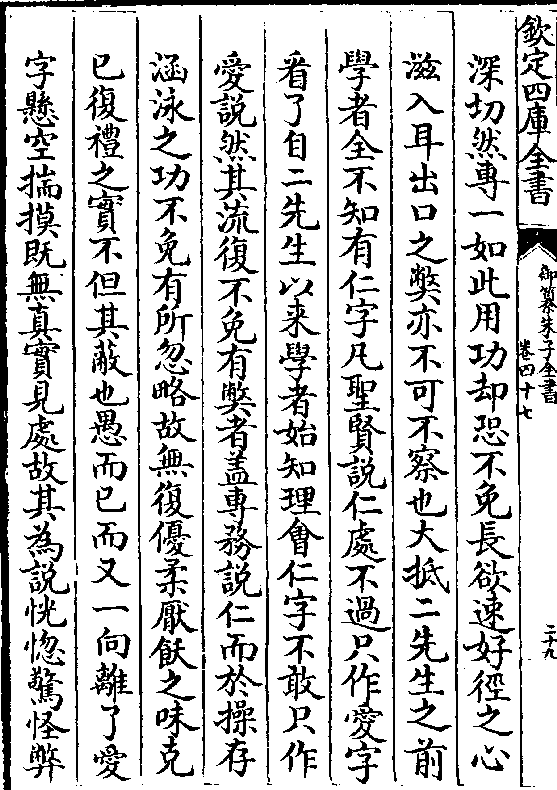 欽定四庫全書
御纂朱子全書
卷四十七
二十九
深切然專一如此用功却恐不免長欲速好徑之心
滋入耳出口之弊亦不可不察也大抵二先生之前
學者全不知有仁字凡聖賢説仁處不過只作愛字
看了自二先生以来學者始知理會仁字不敢只作
愛説然其流復不免有弊者盖專務説仁而於操存
涵泳之功不免有所忽略故無復優柔厭飫之味克
已復禮之實不但其蔽也愚而已而又一向離了愛
字懸空揣摸既無真實見處故其為説恍惚驚怪弊